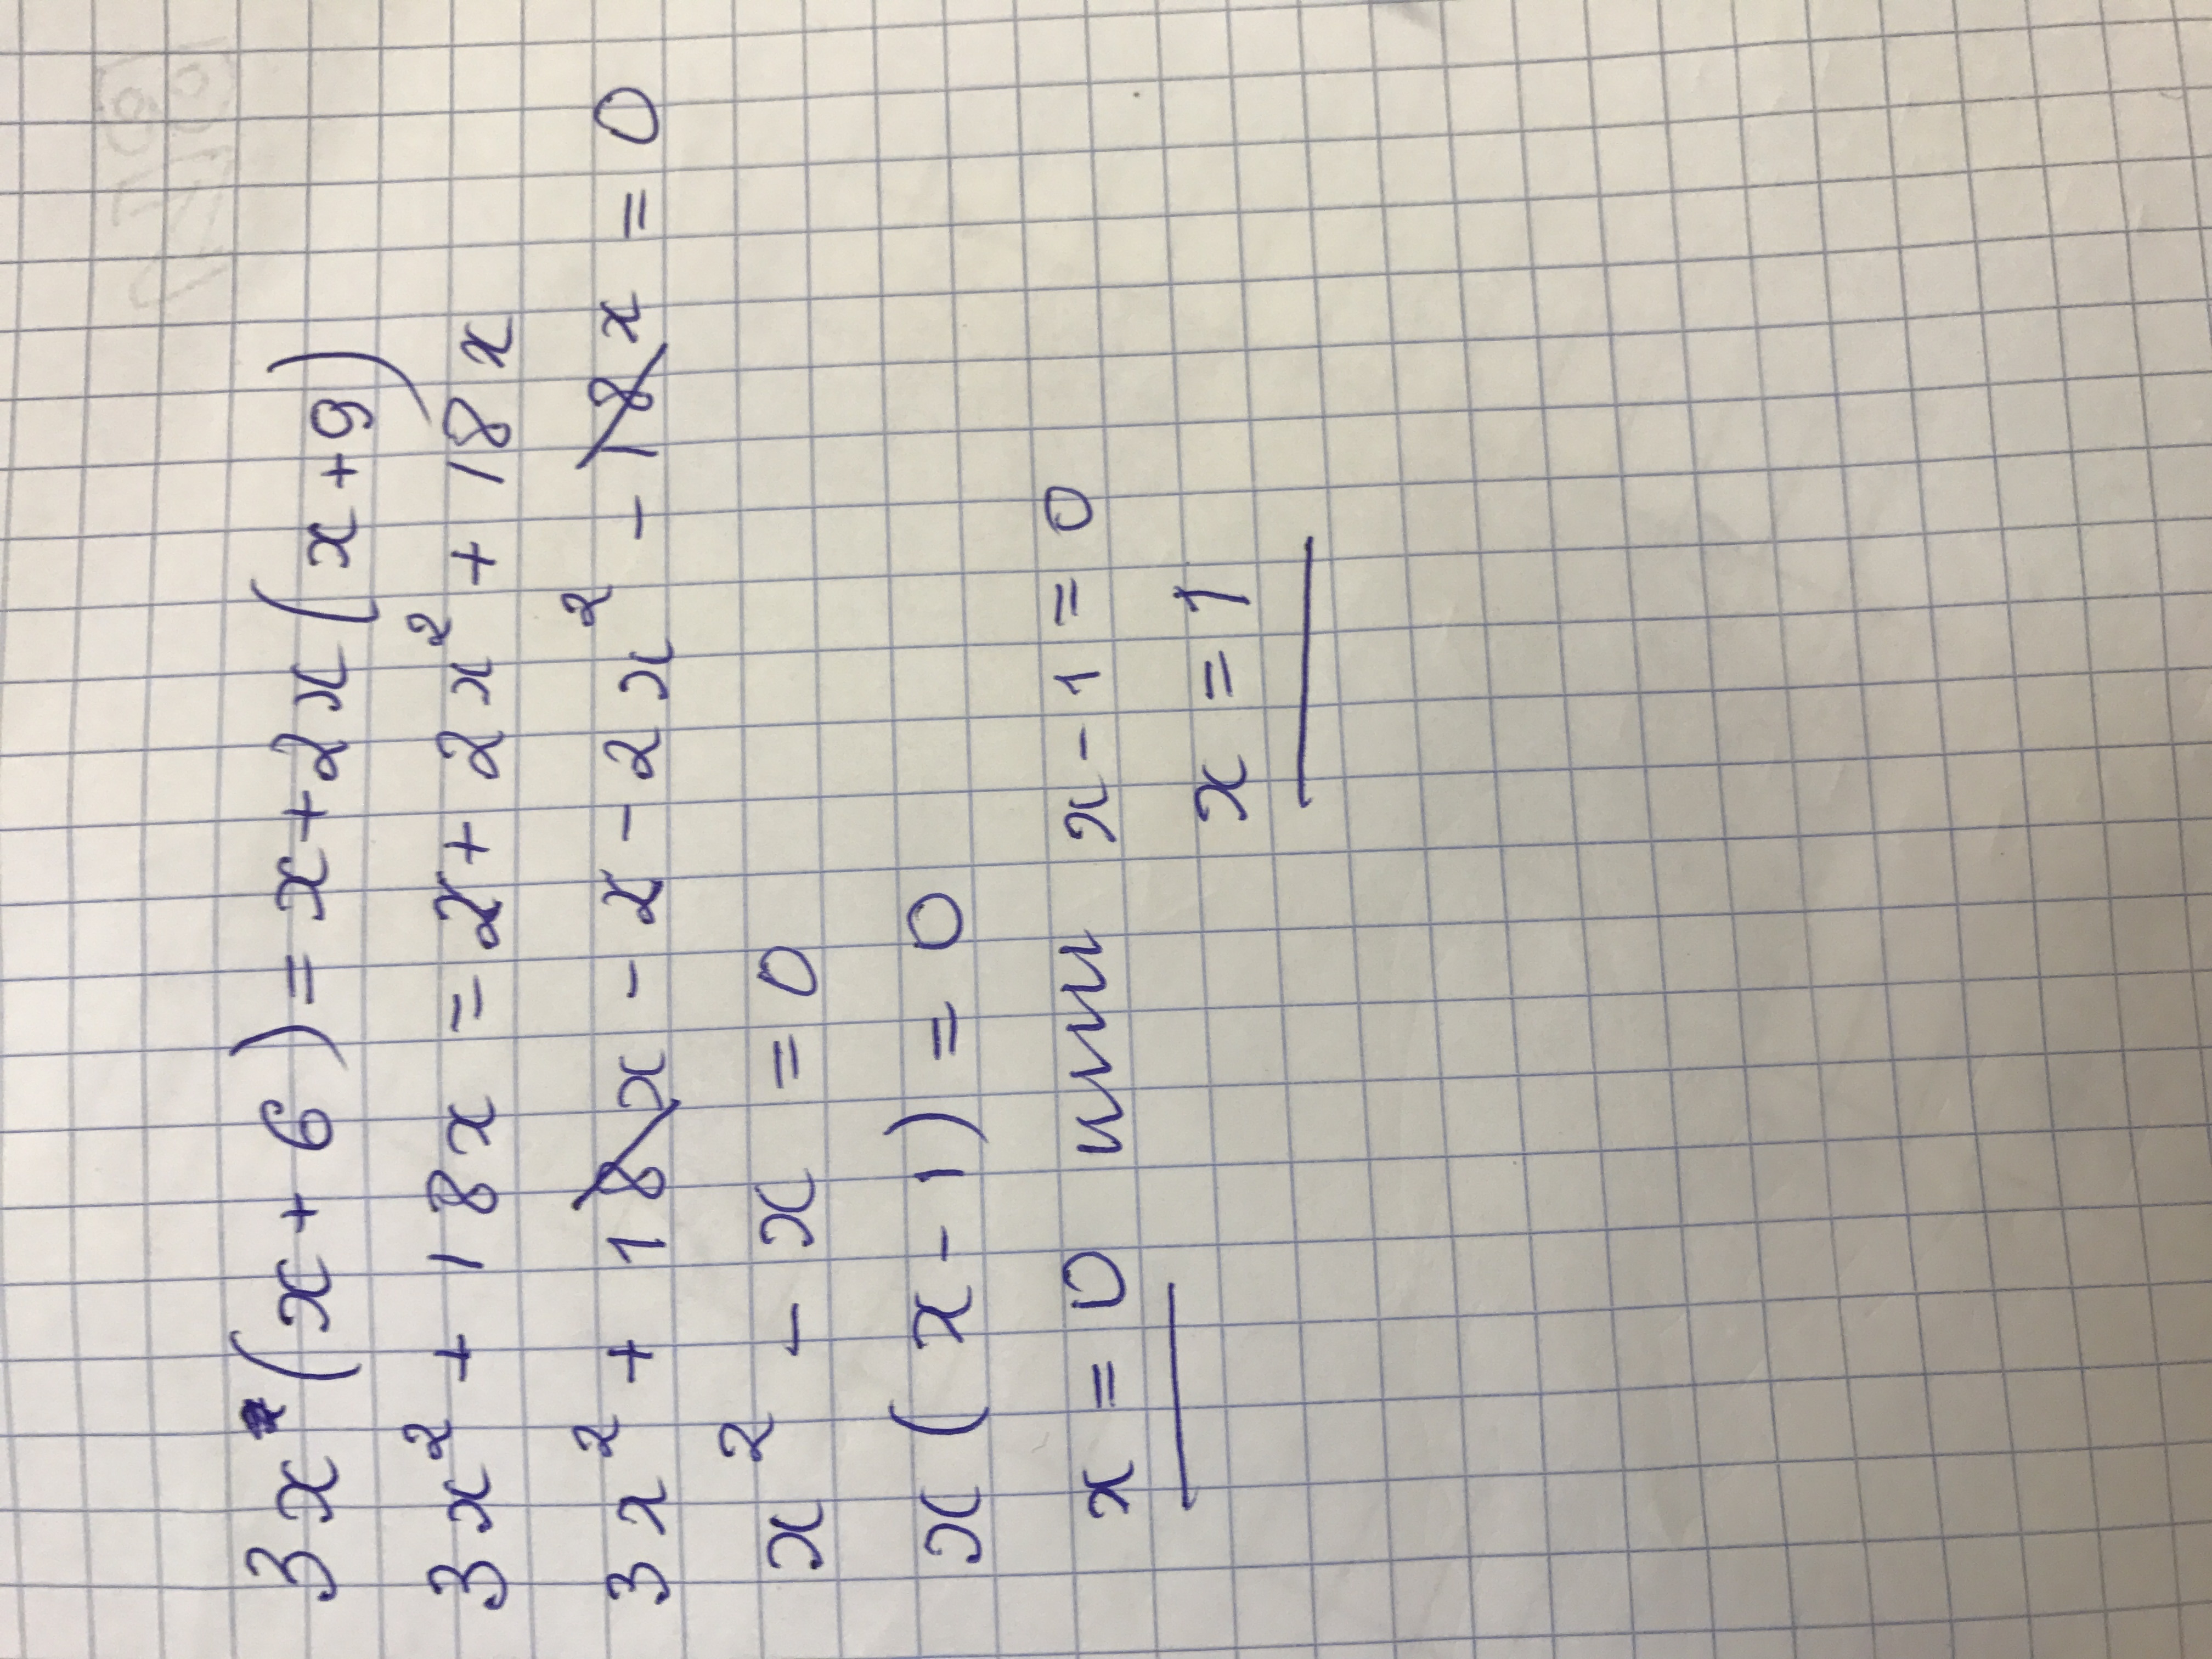 3x(x+6)=x+2x(x+9)
3x²+18x=x+2x²+18x
3x²+18x-x-2x²-18x=0
x²-x=0
x(x-1)=0
x=0 или x-1=0
x=1